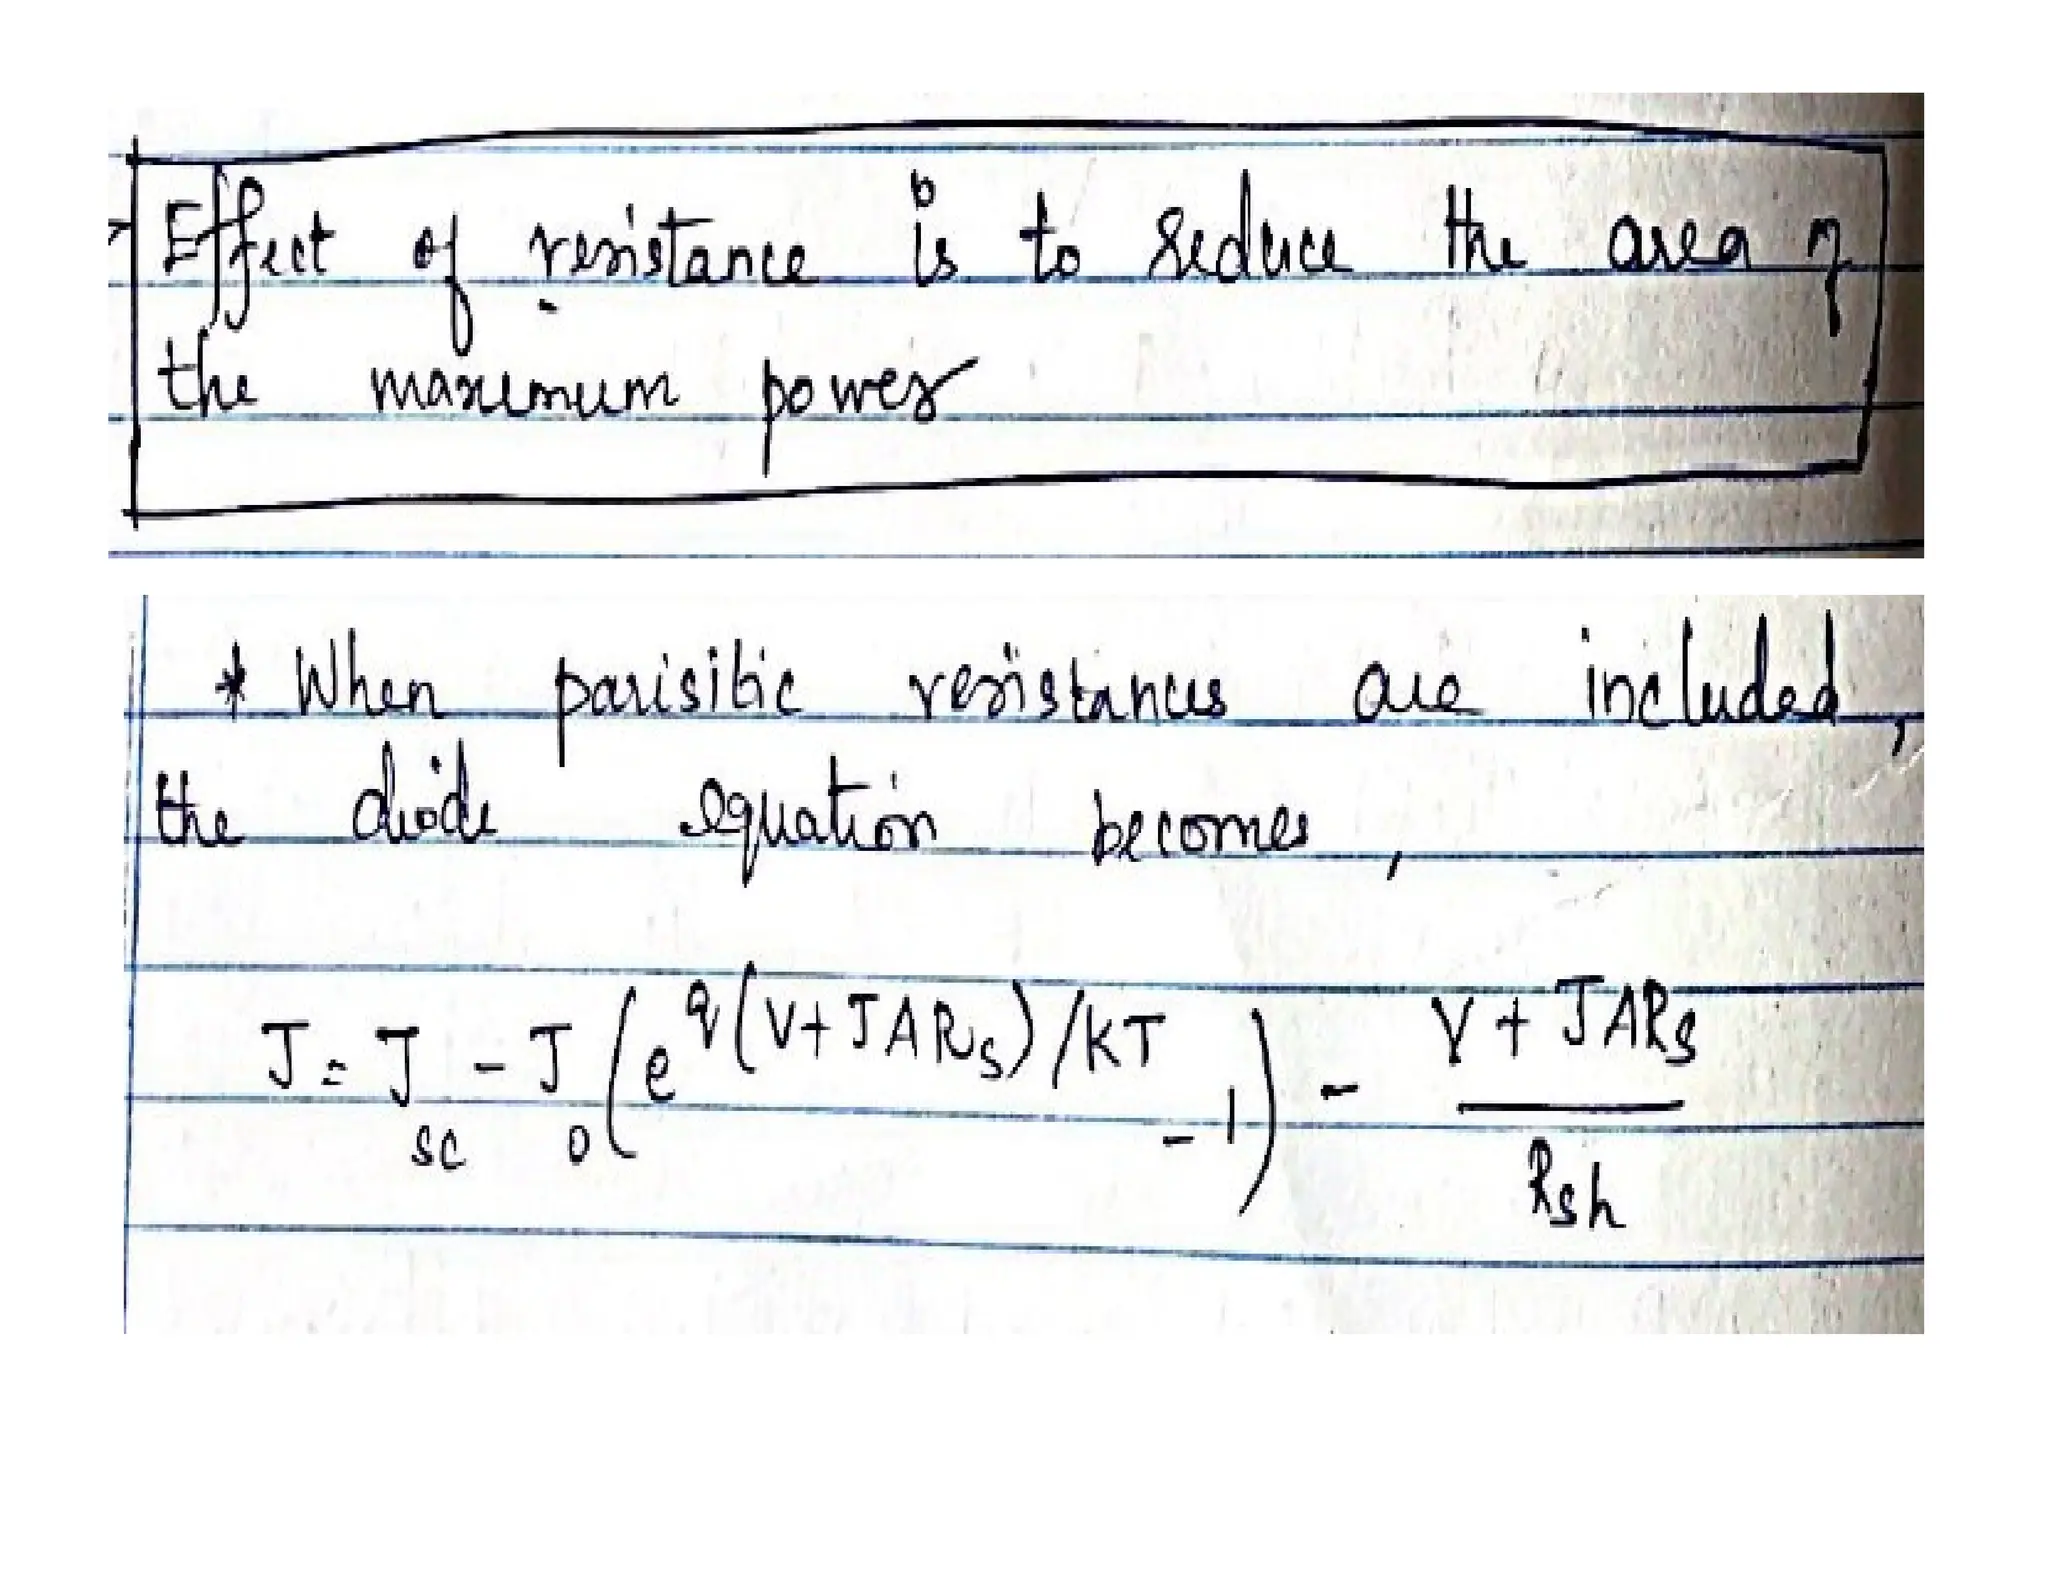 Effect of resistance is to reduce the area of
the maximum power
* When parisitic resistances are included,
the diode equation becomes,
J = J_sc - J_0 (e^{q(V+JARs)/KT} - 1) - (V + JARs) / Rsh